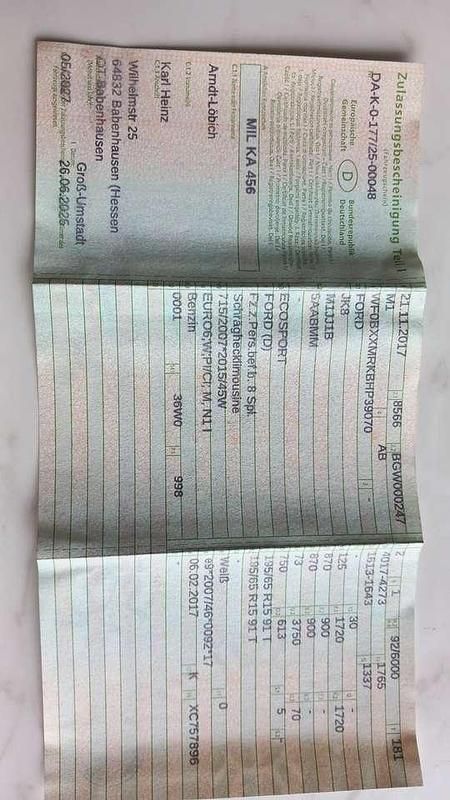 Zulassungsbescheinigung Teil I
(Fahrzeugschein)
DA-K-0-177/25-00048
Europäische
Gemeinschaft
D
Bundesrepublik
Deutschland
MIL KA 456
Arndt-Löbich
Karl Heinz
Wilhelmstr 25
64832 Babenhausen (Hessen
OT Babenhausen
Groß-Umstadt
05/2027
26.06.2025
21.11.2017 8566 BGW000247
M1 AB
WF0BXXMRKBHP39070 -
FORD
JK8
M1JJ1B
5AABMM
ECOSPORT
FORD (D)
Fz.z.Pers.bef.b. 8 Spl.
Schräghecklimousine
715/2007*2015/45W
EURO6;W;PI/CI; M, N1 I
Benzin
0001 36W0 998
2 1 92/6000 181
4017-4273 1765
1513-1643 1337
125 30 -
870 1720 1720
870 900 -
73 900 -
750 3750 70
613 5
195/65 R15 91 T
195/65 R15 91 T
Weiß 0
e9*2007/46*0092*17
06.02.2017 K XC757896